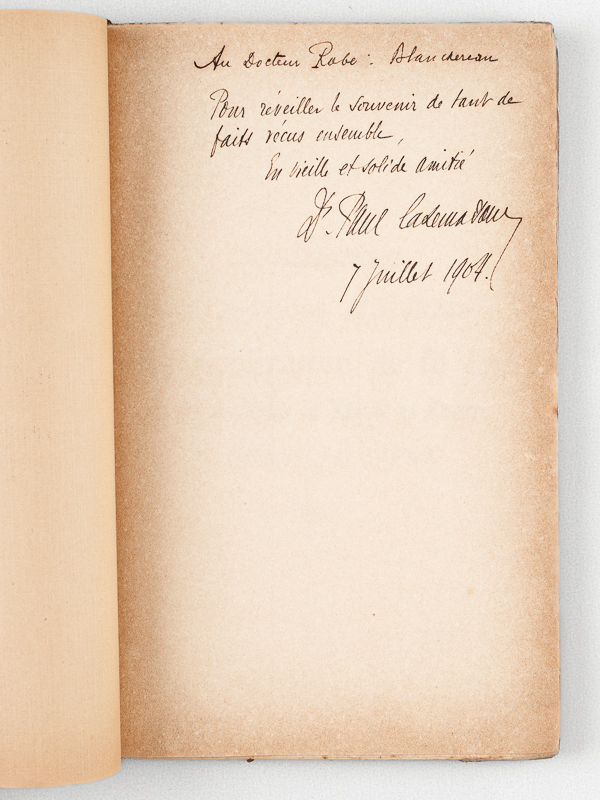 Au Docteur Robe: Blanchereau
Pour réveiller le souvenir de tant de
faits vécus ensemble,
En vieille et solide amitié
Dr. Paul
7 Juillet 1904.